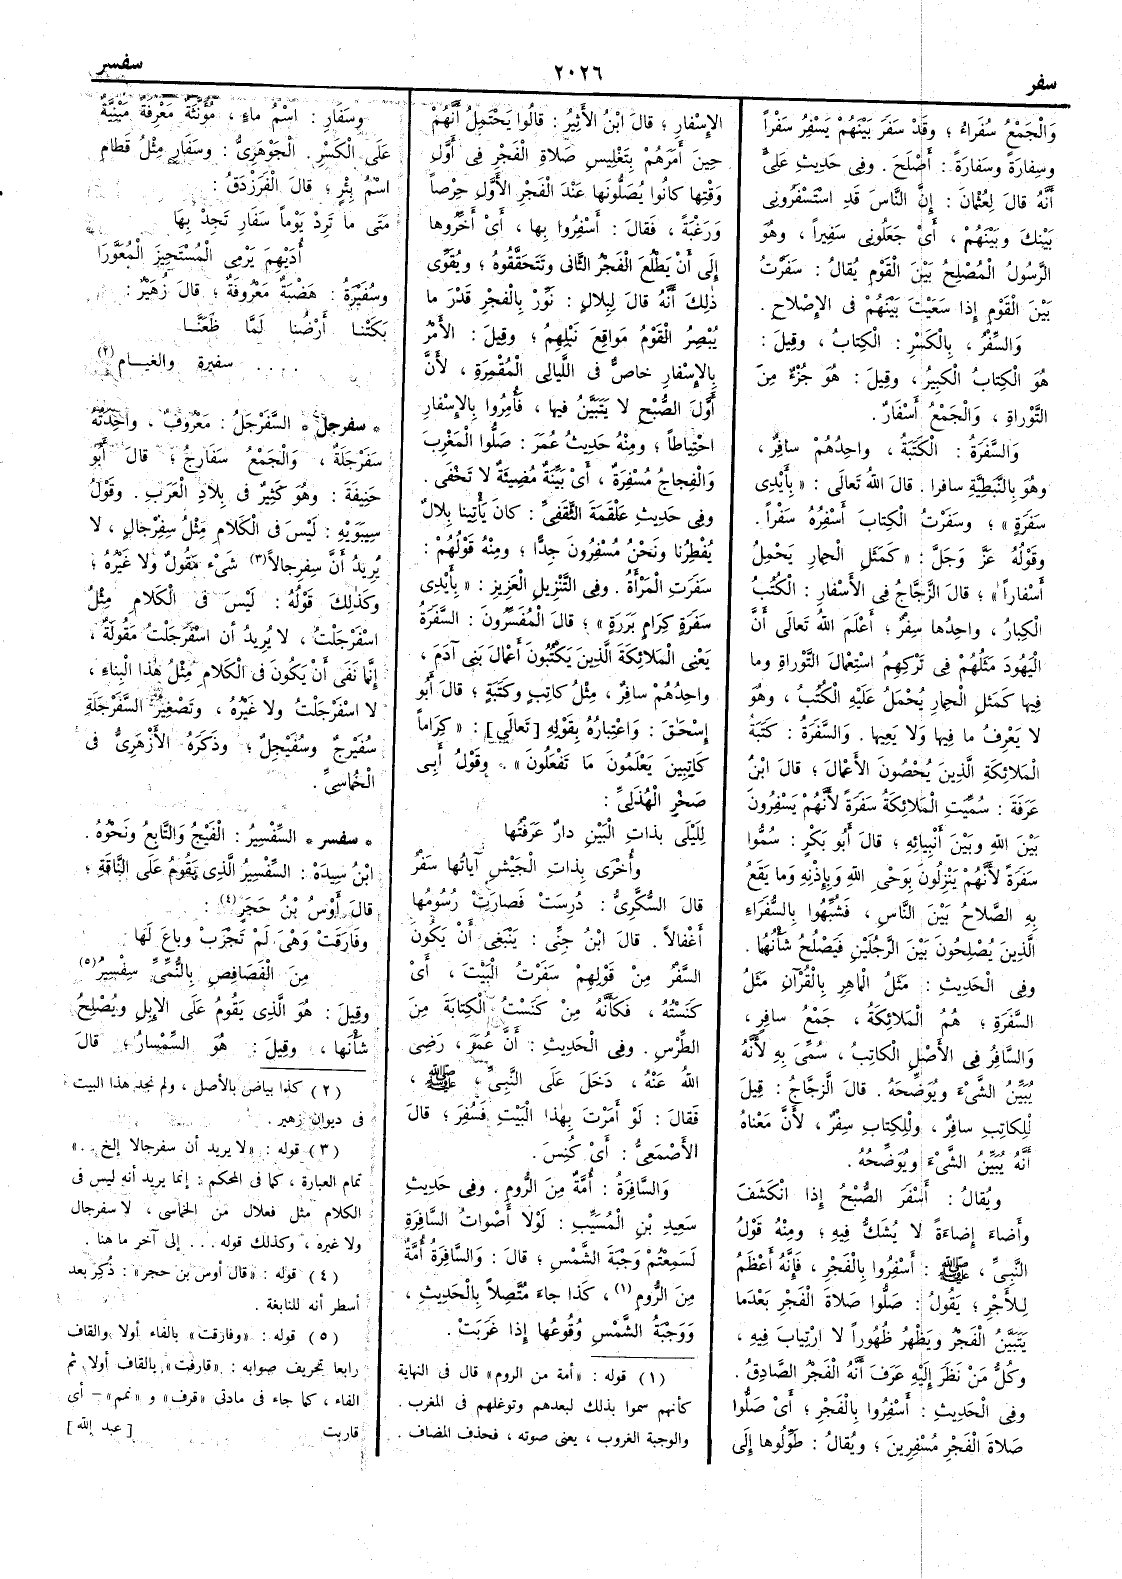 سفر
٢٠٢٦
سفسر
وَالْجَمْعُ سُفَراءُ ؛ وقَدْ سَفَرَ بَيْنَهُمْ يَسْفِرُ سَفْراً
وسِفارَةً وسَفارَةً : أَصْلَحَ . وفِى حَدِيثِ عَلِىٍّ
أَنَّهُ قالَ لِعُثْمانَ : إِنَّ النَّاسَ قَدِ اسْتَسْفَرُونِى
بَيْنَكَ وبَيْنَهُمْ ، أَىْ جَعَلُونِى سَفِيراً ، وهُوَ
الرَّسُولُ الْمُصْلِحُ بَيْنَ الْقَوْمِ يُقالُ : سَفَرْتُ
بَيْنَ الْقَوْمِ إِذا سَعَيْتَ بَيْنَهُمْ فِى الإِصْلاحِ .
وَالسِّفْرُ ، بِالْكَسْرِ : الْكِتابُ ، وقِيلَ :
هُوَ الْكِتابُ الْكَبِيرُ ، وقِيلَ : هُوَ جُزْءٌ مِنَ
التَّوْراةِ ، وَالْجَمْعُ أَسْفارٌ .
وَالسَّفَرَةُ : الْكَتَبَةُ ، واحِدُهُمْ سافِرٌ ،
وهُوَ بِالنَّبَطِيَّةِ سافرا . قالَ اللهُ تَعالَى : « بِأَيْدِى
سَفَرَةٍ » ؛ وسَفَرْتُ الْكِتابَ أَسْفِرُهُ سَفْراً .
وقَوْلُهُ عَزَّ وَجَلَّ : « كَمَثَلِ الْحِمارِ يَحْمِلُ
أَسْفاراً » ؛ قالَ الزَّجَّاجُ فِى الأَسْفارِ : الْكُتُبُ
الْكِبارُ ، واحِدُها سِفْرٌ ؛ أَعْلَمَ اللهُ تَعالَى أَنَّ
الْيَهُودَ مَثَلُهُمْ فِى تَرْكِهِمُ اسْتِعْمالَ التَّوْراةِ وما
فِيها كَمَثَلِ الْحِمارِ يُحْمَلُ عَلَيْهِ الْكُتُبُ ، وهُوَ
لا يَعْرِفُ ما فِيها وَلا يَعِيها . وَالسَّفَرَةُ : كَتَبَةُ
الْمَلائِكَةِ الَّذِينَ يُحْصُونَ الأَعْمالَ ؛ قالَ ابْنُ
عَرَفَةَ : سُمِّيَتِ الْمَلائِكَةُ سَفَرَةً لأَنَّهُمْ يَسْفِرُونَ
بَيْنَ اللهِ وبَيْنَ أَنْبِيائِهِ ؛ قالَ أَبُو بَكْرٍ : سُمُّوا
سَفَرَةً لأَنَّهُمْ يَنْزِلُونَ بِوَحْىِ اللهِ وَبِإِذْنِهِ وَما يَقَعُ
بِهِ الصَّلاحُ بَيْنَ النَّاسِ ، فَشُبِّهُوا بِالسُّفَراءِ
الَّذِينَ يُصْلِحُونَ بَيْنَ الرَّجُلَيْنِ فَيَصْلُحُ شَأْنُهُما .
وفِى الْحَدِيثِ : مَثَلُ الْماهِرِ بِالْقُرْآنِ مَثَلُ
السَّفَرَةِ ؛ هُمُ الْمَلائِكَةُ ، جَمْعُ سافِرٍ ،
وَالسَّافِرُ فِى الأَصْلِ الْكاتِبُ ، سُمِّىَ بِهِ لأَنَّهُ
يُبَيِّنُ الشَّىْءَ ويُوَضِّحُهُ . قالَ الزَّجاجُ : قِيلَ
لِلْكاتِبِ سافِرٌ ، ولِلْكِتابِ سِفْرٌ ، لأَنَّ مَعْناهُ
أَنَّهُ يُبَيِّنُ الشَّىْءَ ويُوَضِّحُهُ .
ويُقالُ : أَسْفَرَ الصُّبْحُ إِذا انْكَشَفَ
وأَضاءَ إِضاءَةً لا يُشَكُّ فِيهِ ؛ ومِنْهُ قَوْلُ
النَّبِىِّ ، ﷺ : أَسْفِرُوا بِالْفَجْرِ ، فَإِنَّهُ أَعْظَمُ
لِلأَجْرِ ؛ يَقُولُ : صَلُّوا صَلاةَ الْفَجْرِ بَعْدَما
يَتَبَيَّنُ الْفَجْرُ ويَظْهَرُ ظُهُوراً لا ارْتِيابَ فِيهِ ،
وكُلُّ مَنْ نَظَرَ إِلَيْهِ عَرَفَ أَنَّهُ الْفَجْرُ الصَّادِقُ .
وفِى الْحَدِيثِ : أَسْفِرُوا بِالْفَجْرِ ؛ أَىْ صَلُّوا
صَلاةَ الْفَجْرِ مُسْفِرِينَ ؛ ويُقالُ : طَوِّلُوها إِلَى
الإِسْفارِ ؛ قالَ ابْنُ الأَثِيرُ : قالُوا يَحْتَمِلُ أَنَّهُمْ
حِينَ أَمَرَهُمْ بِتَغْلِيسِ صَلاةِ الْفَجْرِ فِى أَوَّلِ
وَقْتِها كانُوا يُصَلُّونَها عِنْدَ الْفَجْرِ الأَوَّلِ حِرْصاً
وَرَغْبَةً ، فَقالَ : أَسْفِرُوا بِها ، أَىْ أَخِّرُوها
إِلَى أَنْ يَطْلُعَ الْفَجْرُ الثَّانِى وتَتَحَقَّقُوهُ ؛ ويُقَوِّى
ذٰلِكَ أَنَّهُ قالَ لِبِلالٍ : نَوِّرْ بِالْفَجْرِ قَدْرَ ما
يُبْصِرُ الْقَوْمُ مَواقِعَ نَبْلِهِمْ ؛ وقِيلَ : الأَمْرُ
بِالإِسْفارِ خاصٌّ فِى اللَّيالِى الْمُقْمِرَةِ ، لأَنَّ
أَوَّلَ الصُّبْحِ لا يَتَبَيَّنُ فِيها ، فَأُمِرُوا بِالإِسْفارِ
احْتِياطاً ؛ ومِنْهُ حَدِيثُ عُمَرَ : صَلُّوا الْمَغْرِبَ
وَالْفِجاجُ مُسْفِرَةٌ ، أَىْ بَيِّنَةٌ مُضِيئَةٌ لا تَخْفَى .
وفِى حَدِيثِ عَلْقَمَةَ الثَّقَفِىِّ : كانَ يَأْتِينا بِلالٌ
يُفْطِرُنا ونَحْنُ مُسْفِرُونَ جِدًّا ؛ ومِنْهُ قَوْلُهُمْ :
سَفَرَتِ الْمَرْأَةُ . وفِى التَّنْزِيلِ الْعَزِيزِ : « بِأَيْدِى
سَفَرَةٍ كِرامٍ بَرَرَةٍ » ؛ قالَ الْمُفَسِّرُونَ : السَّفَرَةُ
يَعْنِى الْمَلائِكَةَ الَّذِينَ يَكْتُبُونَ أَعْمالَ بَنِى آدَمَ ،
واحِدُهُمْ سافِرٌ ، مِثْلُ كاتِبٍ وكَتَبَةٍ ؛ قالَ أَبُو
إِسْحٰقَ : وَاعْتِبارُهُ بِقَوْلِهِ [تَعالَى] : « كِراماً
كاتِبِينَ يَعْلَمُونَ ما تَفْعَلُونَ » . وقَوْلُ أَبِى
صَخْرٍ الْهُذَلِىِّ :
لِلَيْلَى بِذاتِ الْبَيْنِ دارٌ عَرَفْتُها
وأُخْرَى بِذاتِ الْجَيْشِ آياتُها سَفْرُ
قالَ السُّكَّرِىُّ : دُرِسَتْ فَصارَتْ رُسُومُها
أَغْفالاً . قالَ ابْنُ جِنِّى : يَنْبَغِى أَنْ يَكُونَ
السَّفْرُ مِنْ قَوْلِهِمْ سَفَرْتُ الْبَيْتَ ، أَىْ
كَنَسْتُهُ ، فَكَأَنَّهُ مِنْ كَنَسْتُ الْكِتابَةَ مِنَ
الطِّرْسِ . وفِى الْحَدِيثِ : أَنَّ عُمَرَ ، رَضِىَ
اللهُ عَنْهُ ، دَخَلَ عَلَى النَّبِىِّ ، ﷺ ،
فَقالَ : لَوْ أَمَرْتَ بِهٰذا الْبَيْتِ فَسُفِرَ ؛ قالَ
الأَصْمَعِىُّ : أَىْ كُنِسَ .
وَالسَّافِرَةُ : أُمَّةٌ مِنَ الرُّومِ . وفِى حَدِيثِ
سَعِيدِ بْنِ الْمُسَيَّبِ : لَوْلا أَصْواتُ السَّافِرَةِ
لَسَمِعْتُمْ وَجْبَةَ الشَّمْسِ ؛ قالَ : وَالسَّافِرَةُ أُمَّةٌ
مِنَ الرُّومِ (١) ، كَذا جاءَ مُتَّصِلاً بِالْحَدِيثِ ،
وَوَجْبَةُ الشَّمْسِ وُقُوعُها إِذا غَرَبَتْ .
(١) قوله : «أمة من الروم» قال فى النهاية
كأنهم سموا بذلك لبعدهم وتوغلهم فى المغرب .
والوجبة الغروب ، يعنى صوته ، فحذف المضاف .
وسَفَارِ : اسْمُ ماءٍ ، مُؤَنَّثَةٌ مَعْرِفَةٌ مَبْنِيَّةٌ
عَلَى الْكَسْرِ . الْجَوْهَرِىُّ : وسَفَارِ مِثْلُ قَطامِ
اسْمُ بِئْرٍ ؛ قالَ الْفَرَزْدَقُ :
مَتَى ما تَرِدْ يَوْماً سَفَارِ تَجِدْ بِها
أُدَيْهِمَ يَرْمِى الْمُسْتَجِيزَ الْمُعَوَّرَا
وسُفَيْرَةُ : هَضْبَةٌ مَعْرُوفَةٌ ؛ قالَ زُهَيْرٌ :
بَكَتْنا أَرْضُنا لَمَّا ظَعَنَّا
. . . . سفيرة والغيام (٢)
* سفرجل * السَّفَرْجَلُ : مَعْرُوفٌ ، واحِدَتُهُ
سَفَرْجَلَةٌ ، وَالْجَمْعُ سَفارِجُ ؛ قالَ أَبُو
حَنِيفَةَ : وهُوَ كَثِيرٌ فِى بِلادِ الْعَرَبِ . وقَوْلُ
سِيبَوَيْهِ : لَيْسَ فِى الْكَلامِ مِثْلُ سِفِرْجالٍ ، لا
يُرِيدُ أَنَّ سِفِرجالاً (٣) شَىْءٌ مَقُولٌ ولا غَيْرُهُ ؛
وكَذٰلِكَ قَوْلُهُ : لَيْسَ فِى الْكَلامِ مِثْلُ
اسْفَرْجَلْتُ ، لا يُرِيدُ أن اسْفَرْجَلْتُ مَقُولَةٌ ،
إِنَّما نَفَى أَنْ يَكُونَ فِى الْكَلامِ مِثْلُ هٰذا الْبِناءِ ،
لا اسْفَرْجَلْتُ ولا غَيْرُهُ ، وتَصْغِيرُ السَّفَرْجَلَةِ
سُفَيْرِجٌ وسُفَيْجِلٌ ؛ وذَكَرَهُ الأَزْهَرِىُّ فِى
الْخُماسِىِّ .
* سفسر * السِّفْسِيرُ : الْفَيْجُ وَالتَّابِعُ ونَحْوُهُ .
ابْنُ سِيدَةَ : السِّفْسِيرُ الَّذِى يَقُومُ عَلَى النَّاقَةِ ؛
قالَ أَوْسُ بْنُ حَجَرٍ (٤) :
وفارَقَتْ وَهْىَ لَمْ تَجْرَبْ وباعَ لَها
مِنَ الْفَصافِصِ بِالنُّمِّىِّ سِفْسِيرُ (٥)
وقِيلَ : هُوَ الَّذِى يَقُومُ عَلَى الإِبِلِ ويُصْلِحُ
شَأْنَها ، وقِيلَ : هُوَ السِّمْسارُ ؛ قالَ
(٢) كذا بياض بالأصل ، ولم نجد هذا البيت
فى ديوان زهير .
(٣) قوله : «لا يريد أن سفرجالا إلخ . . »
تمام العبارة ، كما فى المحكم : إنما يريد أنه ليس فى
الكلام مثل فعلال من الخماسى ، لا سفرجال
ولا غيره ، وكذلك قوله . . . إلى آخر ما هنا .
(٤) قوله : «قال أوس بن حجر» : ذُكِر بعد
أسطر أنه للنابغة .
(٥) قوله : «وفارقت» بالفاء أولا والقاف
رابعا تحريف صوابه : «قارفت» بالقاف أولا ثم
الفاء ، كما جاء فى مادتى «قرف» و «نمم» – أى
قاربت [عبد الله]